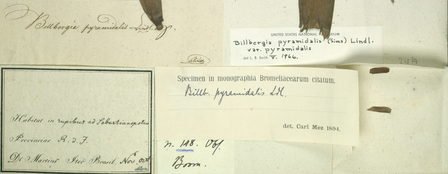 Billbergia pyramidalis Lindl.
UNITED STATES NATIONAL
Billbergia pyramidalis (Sims) Lindl.
var. pyramidalis
det. L. B. Smith V. 1966.
Specimen in monographia Bromeliacearum citatum.
Billb. pyramidalis Ldl.
det. Carl Mez 1894.
Habitat in rupibus ad Sebastianopolin
Provinciae R. d. J.
De Martius Iter Brasil. Nov.
n. 148. Obs.
Brom.